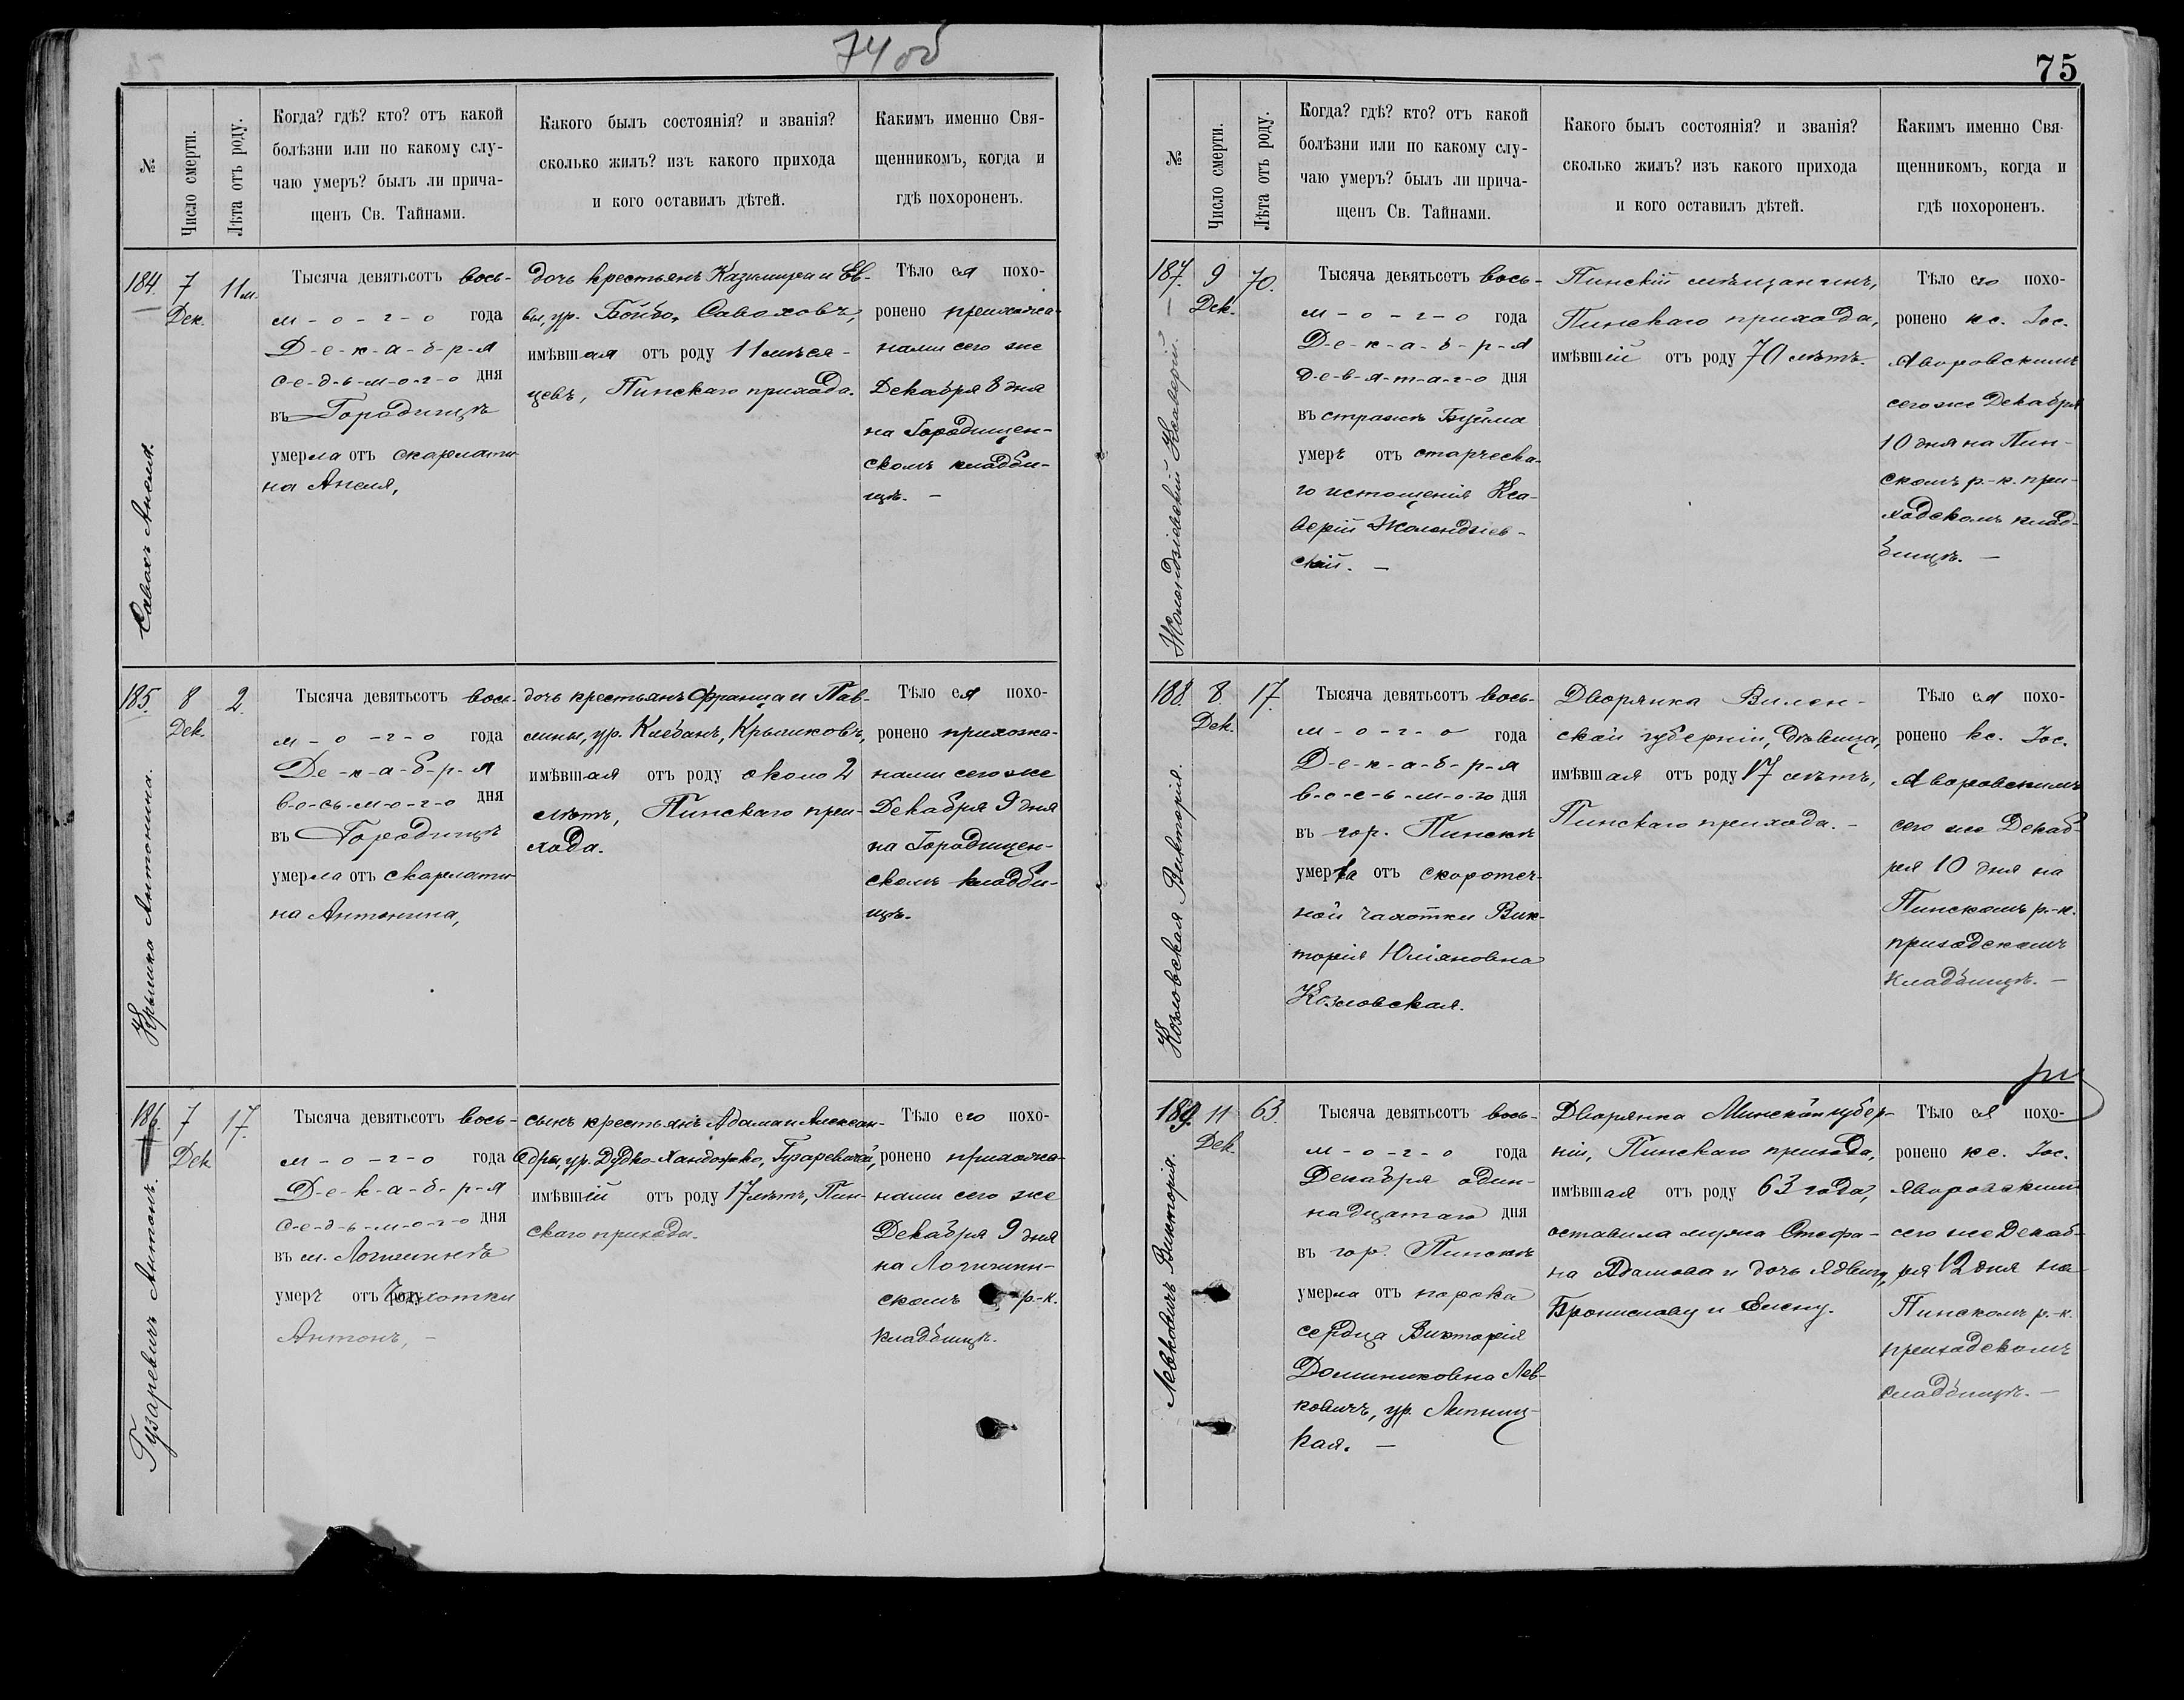 74об
№
Число смерти.
Лѣта отъ роду.
Когда? гдѣ? кто? отъ какой
болѣзни или по какому слу-
чаю умеръ? былъ ли прича-
щенъ Св. Тайнами.
Какого былъ состоянія? и званія?
сколько жилъ? изъ какого прихода
и кого оставилъ дѣтей.
Какимъ именно Свя-
щенникомъ, когда и
гдѣ похороненъ.
184.
Савахъ Анеля.
7
Дек.
11 м.
Тысяча девятьсотъ вось-
м-о-г-о года
Д-е-к-а-б-р-я
с-е-д-ь-м-о-г-о дня
въ Городищѣ
умерла отъ скарлати-
на Анеля,
дочь крестьянъ Казимира и Ев-
вы, ур. Бойбо, Саваховъ,
имѣвшая отъ роду 11 мѣся-
цевъ, Пинскаго прихода.
Тѣло ея похо-
ронено прихожа-
нами сего же
Декабря 8 дня
на Городищен-
скомъ кладби-
щѣ. —
185.
Крышка Антонина.
8
Дек.
2.
Тысяча девятьсотъ вось-
м-о-г-о года
Де-к-а-б-р-я
в-о-сь-м-о-г-о дня
въ Городищѣ
умерла отъ скарлати-
на Антонина,
дочь крестьянъ Франца и Пав-
лины, ур. Клебанъ, Крышковъ,
имѣвшая отъ роду около 2
лѣтъ, Пинскаго при-
хода.
Тѣло ея похо-
ронено прихожа-
нами сего же
Декабря 9 дня
на Городищен-
скомъ кладби-
щѣ.
186.
Гузаревичъ Антонъ.
7
Дек
17.
Тысяча девятьсотъ вось-
м-о-г-о года
Д-е-к-а-б-р-я
с-е-д-ь-м-о-г-о дня
въ м. Логишинѣ
умеръ отъ чахотки
Антонъ, —
сынъ крестьянъ Адама и Алексан-
дры, ур. Дудко-Хандожко, Гузаревичей,
имѣвшій отъ роду 17 лѣтъ, Пин-
скаго прихода.
Тѣло его похо-
ронено прихожа-
нами сего же
Декабря 9 дня
на Логишин-
скомъ р.-к.
кладбищѣ.
75
№
Число смерти.
Лѣта отъ роду.
Когда? гдѣ? кто? отъ какой
болѣзни или по какому слу-
чаю умеръ? былъ ли прича-
щенъ Св. Тайнами.
Какого былъ состоянія? и званія?
сколько жилъ? изъ какого прихода
и кого оставилъ дѣтей.
Какимъ именно Свя-
щенникомъ, когда и
гдѣ похороненъ.
187.
Жолондзіевскій Ксаверій. —
9
Дек.
70.
Тысяча девятьсотъ вось-
м-о-г-о года
Д-е-к-а-б-р-я
д-е-в-я-т-а-г-о дня
въ
умеръ отъ старческа-
го истощенія Кса-
верій Жолондзіев-
скій. —
Пинскій мѣщанинъ,
Пинскаго прихода,
имѣвшій отъ роду 70 лѣтъ.
Тѣло его похо-
ронено кс. Іос.
Яворовскимъ
сего же Декабря
10 дня на Пин-
скомъ р.-к. при-
ходскомъ клад-
бищѣ. —
188.
Козловская Викторія.
8.
Дек.
17.
Тысяча девятьсотъ вось-
м-о-г-о года
Д-е-к-а-б-р-я
в-о-с-ь-м-о-го дня
въ гор. Пинскѣ
умерла отъ скоротеч-
ной чахотки Вик-
торія Юліяновна
Козловская.
Дворянка Вилен-
ской губерніи, дѣвица,
имѣвшая отъ роду 17 лѣтъ,
Пинскаго прихода. —
Тѣло ея похо-
ронено кс. Іос.
Яворовскимъ
сего же Декаб-
ря 10 дня на
Пинскомъ р.-к.
приходскомъ
кладбищѣ. —
189.
Левковичъ Викторія.
11
Дек.
63.
Тысяча девятьсотъ вось-
м-о-г-о года
Декабря один-
надцатаго дня
въ гор. Пинскѣ
умерла отъ порока
сердца Викторія
Доминиковна Лев-
ковичъ, ур. Липниц-
кая. —
Дворянка Минской губер-
ніи, Пинскаго прихода,
имѣвшая отъ роду 63 года,
оставила мужа Стефа-
на Адамова и дочь Ядвигу,
Брониславу и Елену.
Тѣло ея похо-
ронено кс. Іос.
Яворовскимъ
сего же Декаб-
ря 12 дня на
Пинскомъ р.-к.
приходскомъ
кладбищѣ. —